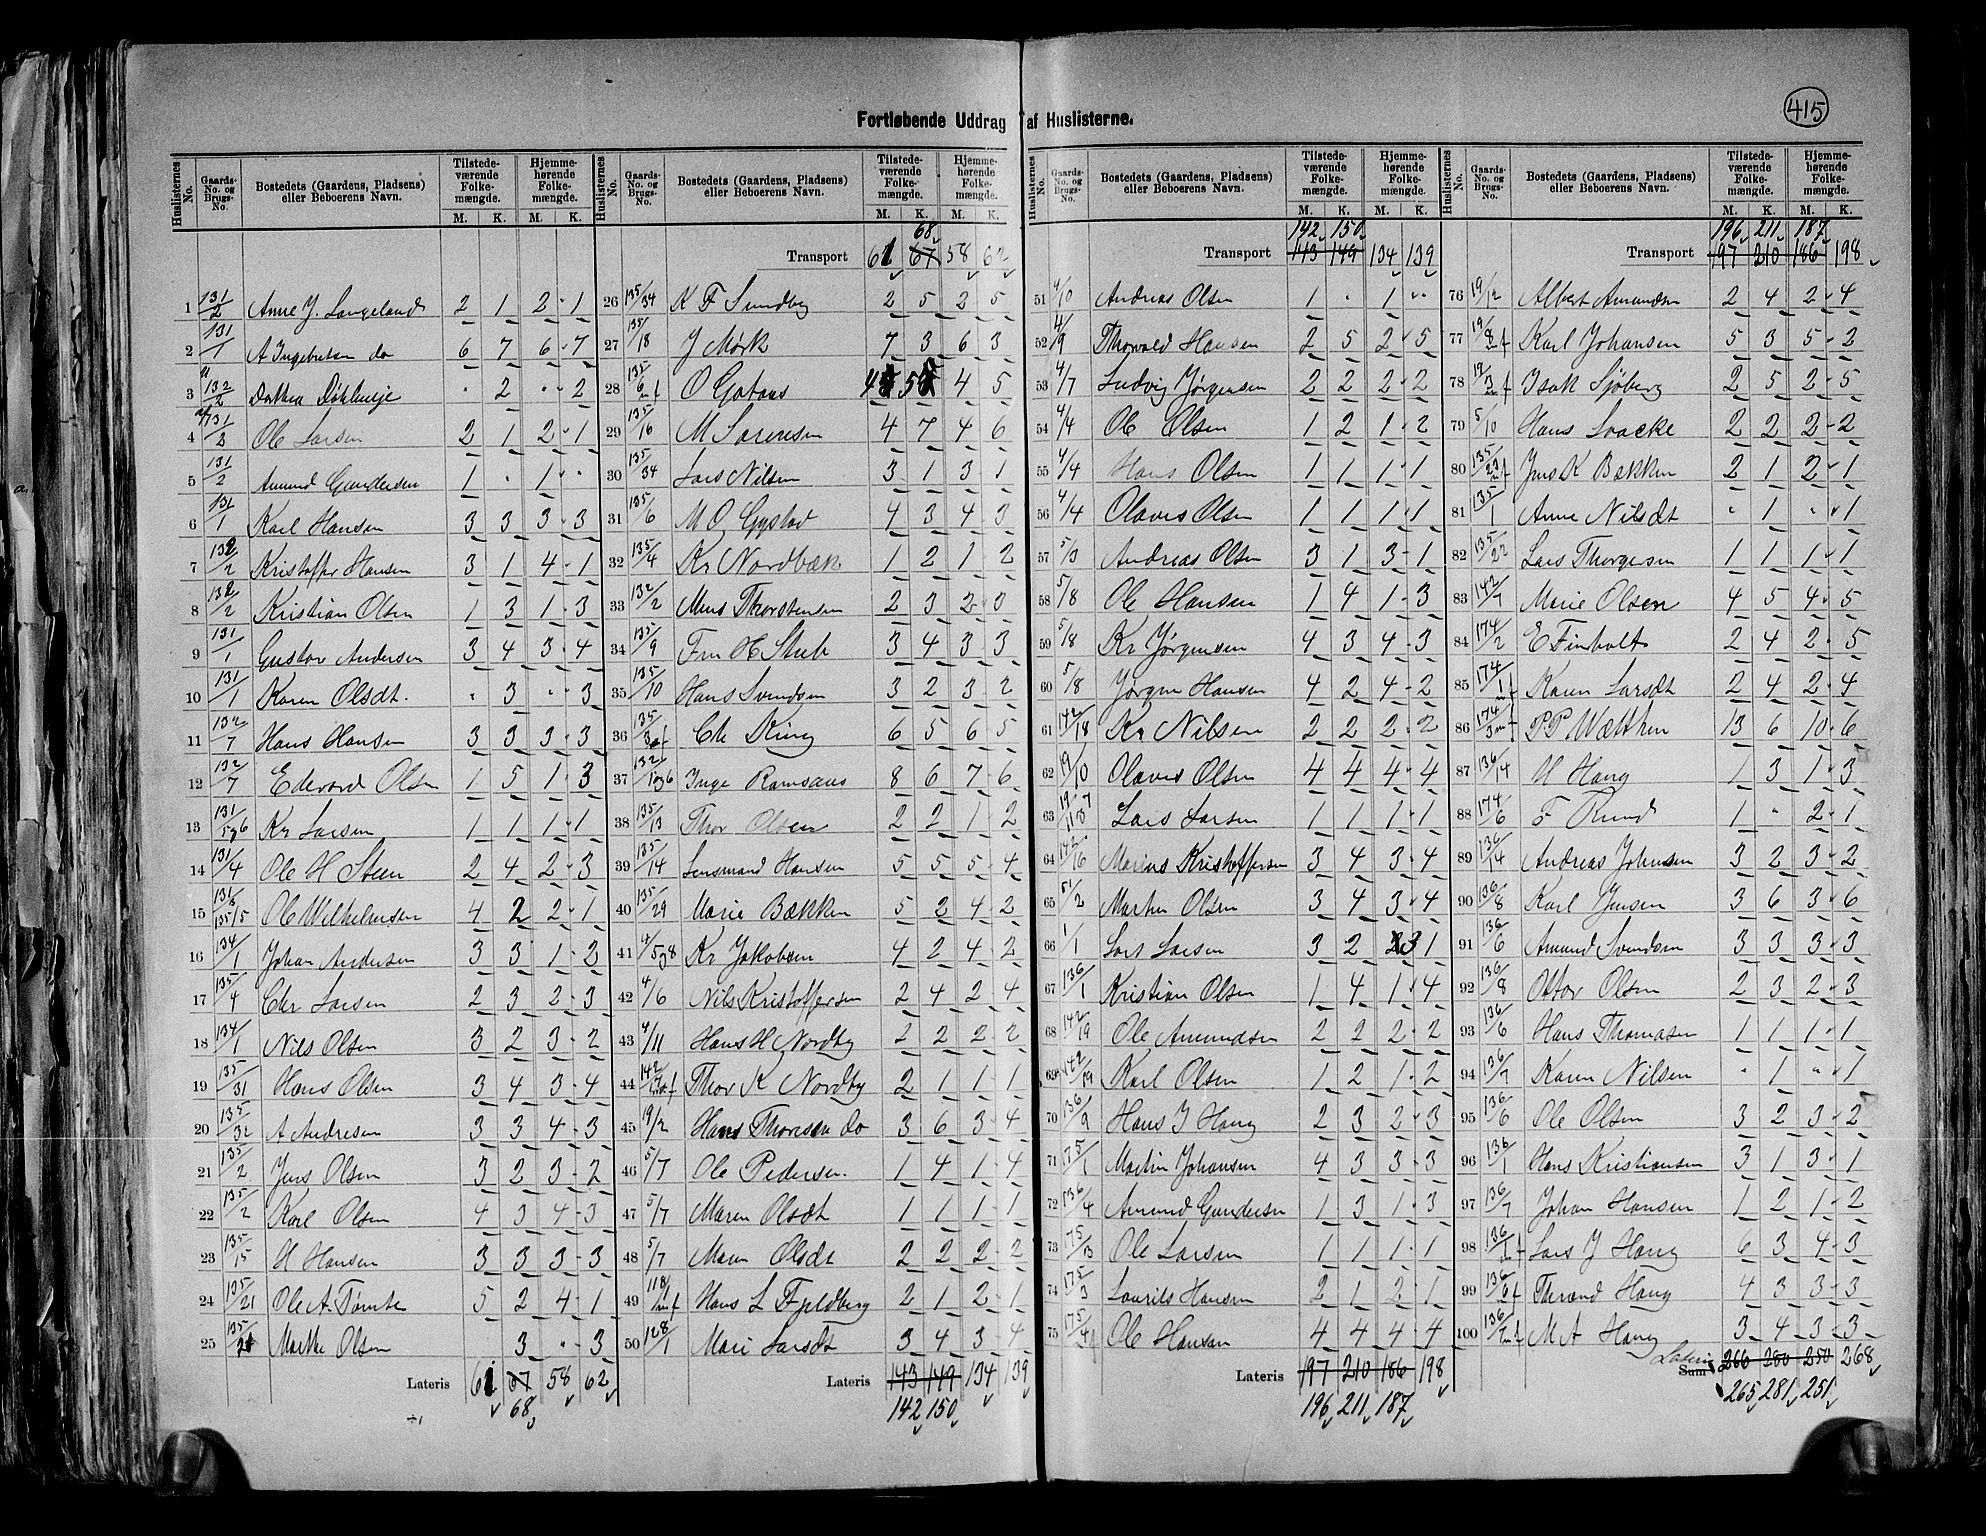 415
Fortløbende Uddrag af Huslisterne.
Huslisternes No. | Gaards-No. og Brugs-No. | Bostedets (Gaardens, Pladsens) eller Beboerens Navn. | Tilstedeværende Folkemængde. M. K. | Hjemmehørende Folkemængde. M. K.
1 131/2 Anne J. Langeland 2 1 2 1
2 131/1 A Ingebretsen do 6 7 6 7
3 132/2 Dorthea Døhlinje · 2 · 2
4 131/2 Ole Larsen 2 1 2 1
5 131/2 Amund Gundersen 1 · 1 ·
6 131/1 Karl Hansen 3 3 3 3
7 132/2 Kristoffer Hansen 3 1 4 1
8 132/2 Kristian Olsen 1 3 1 3
9 131/1 Gustav Andersen 3 4 3 4
10 131/1 Karen Olsdt. · 3 · 3
11 132/7 Hans Hansen 3 3 3 3
12 132/7 Edevard Olsen 1 5 1 3
13 131/5og6 Kr Larsen 1 1 1 1
14 131/4 Ole H Steen 2 4 2 3
15 131/3 135/5 Ole Wilhelmsen 4 2 2 1
16 134/1 Johan Andersen 3 3 1 2
17 135/4 Chr Larsen 2 3 2 3
18 134/1 Nils Olsen 3 2 3 2
19 135/31 Hans Olsen 3 4 3 4
20 135/32 A Andresen 3 3 4 3
21 135/2 Jens Olsen 3 2 3 2
22 135/2 Karl Olsen 4 3 4 3
23 135/15 H Hansen 3 3 3 3
24 135/21 Ole A. Tømte 5 2 4 1
25 Marthe Olsen 3 · 3
Lateris 61 67 58 62
68
÷1
68
Transport 61 67 58 62
26 135/34 K F Sundby 2 5 2 5
27 135/18 J Mørk 7 3 6 3
28 135/6 mf O Gotaas 4 5 4 5
29 135/16 M Sørensen 4 7 4 6
30 135/34 Lars Nilsen 3 1 3 1
31 135/6 M O Gystad 4 3 4 3
32 135/4 Kr Nordbæk 1 2 1 2
33 132/2 Mens Thorstensen 2 3 2 3
34 135/9 Fru H Stub 3 4 3 3
35 135/10 Hans Svendsen 3 2 3 2
36 135/3 Chr Ring 6 5 6 5
37 132/1 og 6 Inge Ramsaas 8 6 7 6
38 135/13 Thor Olsen 2 2 1 2
39 135/14 Lensmand Hansen 5 5 5 4
40 135/29 Marie Bækken 5 2 4 2
41 4/5og8 Kr Jakobsen 4 2 4 2
42 4/6 Nils Kristoffersen 2 4 2 4
43 4/11 Hans H Nordby 2 2 2 2
44 142/ Thor K Nordby 2 1 1 1
45 19/2 Hans Thoresen do 3 6 3 4
46 5/7 Ole Pedersen. 1 4 1 4
47 5/7 Maren Olsdt 1 1 1 1
48 5/7 Maren Olsdt 2 2 2 2
49 118/1mf Hans L Fjeldberg 2 1 2 1
50 128/1 Mari Larsdt 3 4 3 4
Lateris 143 149 134 139
142 150
142 150
Transport 143 149 134 139
51 4/10 Andreas Olsen 1 · 1 ·
52 4/9 Thorvald Hansen 2 5 2 5
53 4/7 Ludvig Jørgensen 2 2 2 2
54 4/4 Ole Olsen 1 2 1 2
55 4/4 Hans Olsen 1 1 1 1
56 4/4 Olaves Olsen 1 1 1 1
57 5/3 Andreas Olsen 3 1 3 1
58 5/8 Ole Hansen 1 4 1 3
59 5/8 Kr Jørgensen 4 3 4 3
60 5/8 Jørgen Hansen 4 2 4 2
61 142/18 Kr Nilsen 2 2 2 2
62 19/10 Olaves Olsen 4 4 4 4
63 Lars Larsen 1 1 1 1
64 142/16 Marius Kristoffersen 3 4 3 4
65 51/2 Martin Olsen 3 4 3 4
66 1/1 Lars Larsen 3 2 3 1
67 136/1 Kristian Olsen 1 4 1 4
68 142/19 Ole Amundsen 2 2 2 2
69 142/19 Karl Olsen 1 2 1 2
70 136/9 Hans J Haug 2 3 2 3
71 175/1 Martin Johansen 4 3 3 3
72 136/4 Amund Gundersen 1 3 1 3
73 175/3 Ole Larsen 1 1 1 1
74 175/3 Laurits Hansen 2 1 2 1
75 175/4 Ole Hansen 4 4 4 4
Lateris 197 210 186 198
196 211 187
196 211 187
Transport 197 210 186 198
76 19/2 Albert Amundsen 2 4 2 4
77 19/8 mf Karl Johansen 5 3 5 2
78 19/3 mf Isak Sjøberg 2 5 2 5
79 5/10 Hans Laacke 2 2 2 2
80 135/23 mf Jens K Bækken 2 1 2 1
81 135/1 Anne Nilsdt · 1 · 1
82 135/22 Lars Thorgersen 1 1 1 1
83 142/7 Marie Olsen 4 5 4 5
84 174/2 E Finholt 2 4 2 5
85 174/1 mf Karen Larsdt 2 4 2 4
86 174/3 mf P P Wætthen 13 6 10 6
87 136/14 H Haug 1 3 1 3
88 174/6 F Rund 1 · 2 1
89 136/4 Andreas Johnsen 3 2 3 2
90 136/8 Karl Jensen 3 6 3 6
91 136/6 Amund Svendsen 3 3 3 3
92 136/8 Ottar Olsen 2 3 2 3
93 136/6 Hans Thomasen 1 1 1 1
94 136/7 Karen Nilsen · 1 · 1
95 136/6 Ole Olsen 3 2 3 2
96 136/1 Hans Kristiansen 3 1 3 1
97 136/7 Johan Hansen 1 2 1 2
98 136/1 f Lars J Haug 6 3 4 3
99 136/6 f Thrand Haug 4 3 3 3
100 136/7 mf M A Haug 3 4 3 3
Lateris Sum 266 280 250 268
265 281 251